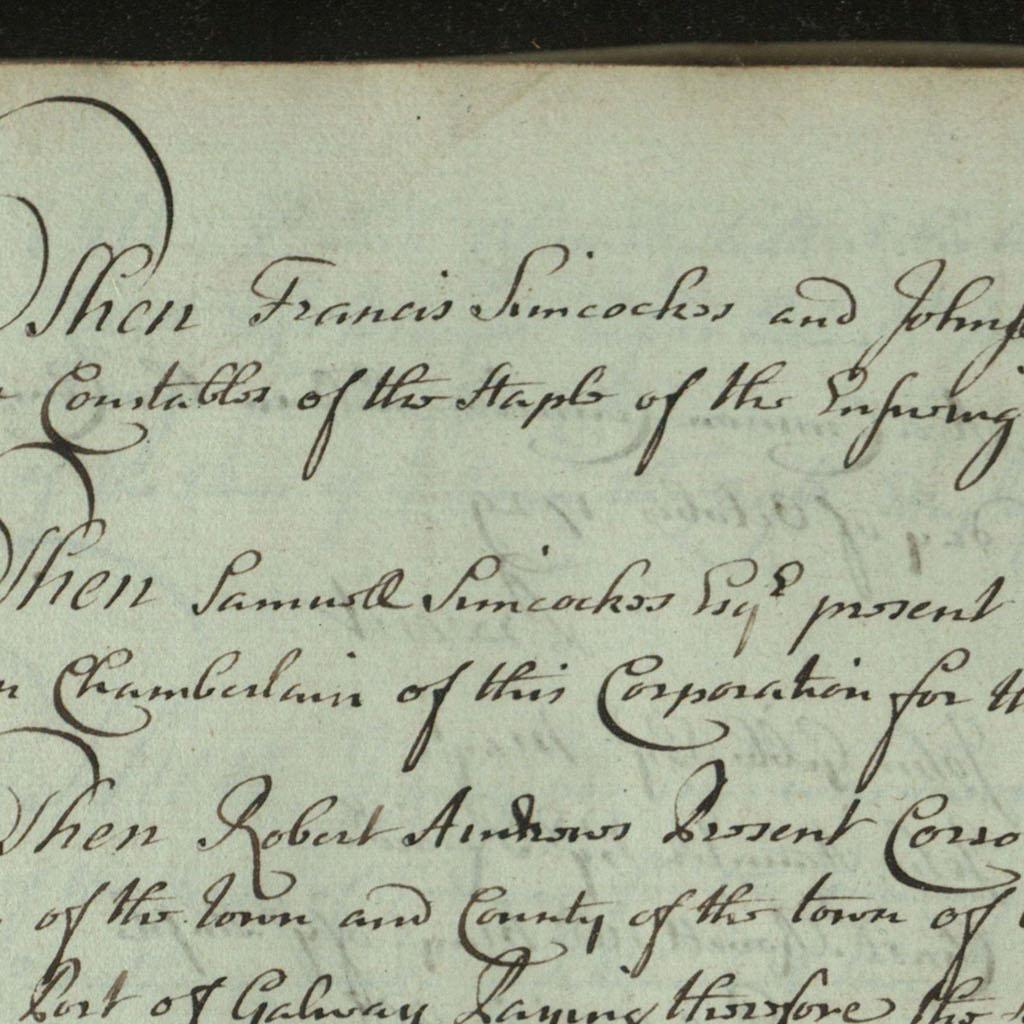 Then Francis Simcockes and John
Constables of the Staple of the Ensueing
Then Samuell Simcockes Esqr present
Chamberlain of this Corporation for th
Then Robert Andrews Present Corro
of the town and County of the town of
Port of Galway Paying therefore the